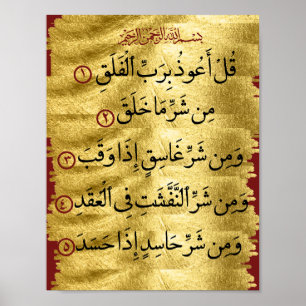 بسم الله الرحمن الرحيم
قُلْ أَعُوذُ بِرَبِّ ٱلْفَلَقِ ١
مِن شَرِّ مَا خَلَقَ ٢
وَمِن شَرِّ غَاسِقٍ إِذَا وَقَبَ ٣
وَمِن شَرِّ ٱلنَّفَّٰثَٰتِ فِى ٱلْعُقَدِ ٤
وَمِن شَرِّ حَاسِدٍ إِذَا حَسَدَ ٥